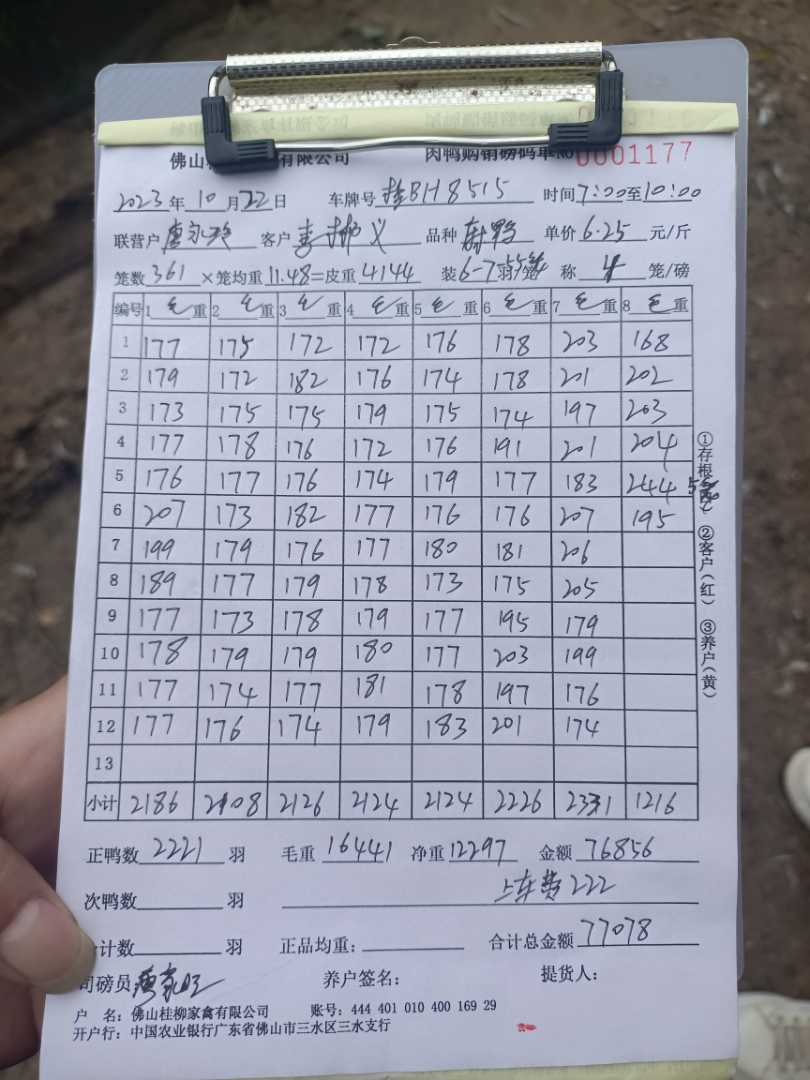 佛山桂 有限公司 肉鸭购销磅码单No 0001177
2023年10月22日 车牌号 桂BH8515 时间7:00至10:00
联营户 客户 李 义 品种 单价 6.25 元/斤
笼数 361 ×笼均重 11.48=皮重 4144 装6-7羽/笼 称 4 笼/磅
编号 1 毛重 2 毛重 3 毛重 4 毛重 5 毛重 6 毛重 7 毛重 8 毛重
1 177 175 172 172 176 178 203 168
2 179 172 182 176 174 178 201 202
3 173 175 175 179 175 174 197 203
4 177 178 176 172 176 191 201 204
5 176 177 176 174 179 177 183 244
6 207 173 182 177 176 176 207 195
7 199 179 176 177 180 181 206
8 189 177 179 178 173 175 205
9 177 173 178 179 177 195 179
10 178 179 179 180 177 203 199
11 177 174 177 181 178 197 176
12 177 176 174 179 183 201 174
13
小计 2186 2108 2126 2124 2124 2226 2331 1216
①存根 ②客户(红) ③养户(黄)
正鸭数 2221 羽 毛重 16441 净重 12297 金额 76856
次鸭数 羽 上车费 222
合计数 羽 正品均重: 合计总金额 77078
司磅员 养户签名: 提货人:
户 名: 佛山桂柳家禽有限公司 账号: 444 401 010 400 169 29
开户行: 中国农业银行广东省佛山市三水区三水支行